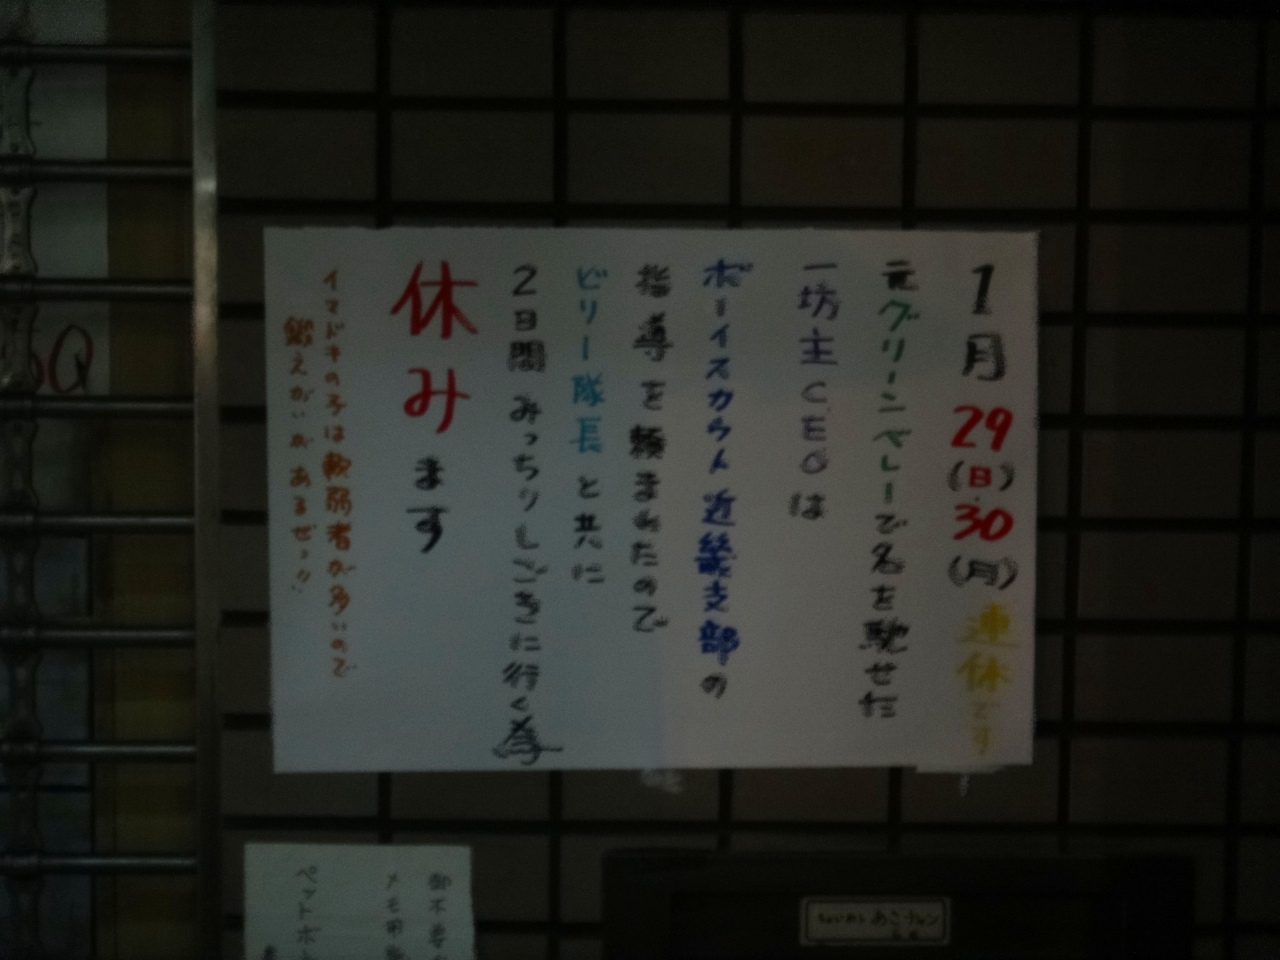 1月29(日)・30(月)連休です
元グリーンベレーで名を馳せた
一坊主CEOは
ボーイスカウト近畿支部の
指導を頼まれたので
ビリー隊長と共に
2日間みっちりしごきに行く為
休みます
イマドキの子は軟弱者が多いので
鍛えがいがあるぜっ!!
御不要
メモ用
ペットボト